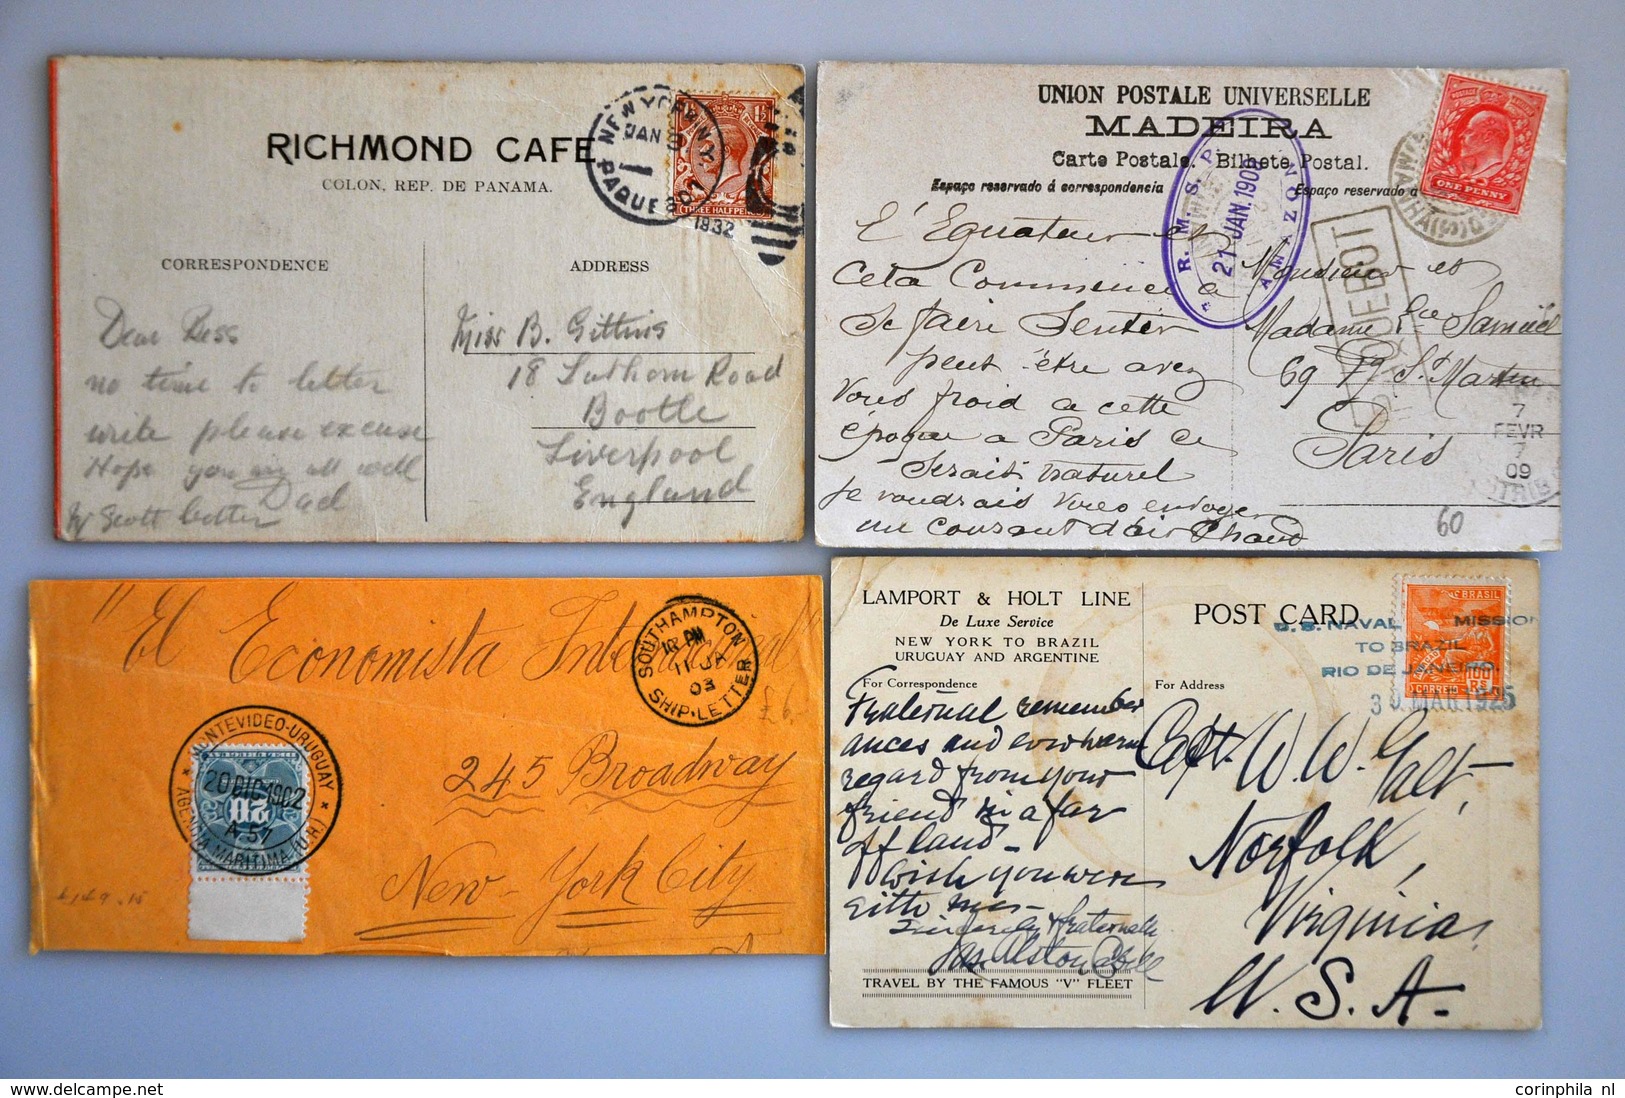 RICHMOND CAFE
COLON, REP. DE PANAMA.
NEW YORK, N.Y.
JAN
1
PAQUEBOT
1932
1½
THREE HALF PENCE
CORRESPONDENCE
ADDRESS
Dear Bess
no time to letter
write please excuse
Hope you are all well
Dad
Scott letter
Miss B. Gittins
18 Lathom Road
Bootle
Liverpool
England
UNION POSTALE UNIVERSELLE
MADEIRA
Carte Postale. Bilhete Postal.
Espaço reservado á correspondencia
Espaço reservado a
R. M. S. P.
21 JAN. 1909
AMAZON
ONE PENNY
PAQUEBOT
L'Equateur et
Ceta Commence à
Se faire Sentir
peut être avez
Vous froid a cette
époque a Paris ce
Serait naturel
Je voudrais vous envoyer
un courant d'air Chaud
Monsieur et
Madame Samuel
69 St Martin
Paris
7
FEVR
09
60
"El Economista Internacional"
245 Broadway
New-York City
SOUTHAMPTON
11 JA
03
SHIP-LETTER
£6-
MONTEVIDEO-URUGUAY
20 DIC 1902
A 57
AGENCIA MARITIMA (U.H.)
LAMPORT & HOLT LINE
De Luxe Service
NEW YORK TO BRAZIL
URUGUAY AND ARGENTINE
POST CARD
For Correspondence
For Address
BRASIL
100
RS
CORREIO
U.S. NAVAL MISSION
TO BRAZIL
RIO DE JANEIRO
30 MAR. 1925
Fraternal remember
ances and
regard from your
friend in a far
off land-
Wish you were
Sincerely & fraternally
Capt. W. W. Galt,
Norfolk,
Virginia,
U. S. A.
TRAVEL BY THE FAMOUS "V" FLEET
corinphila nl